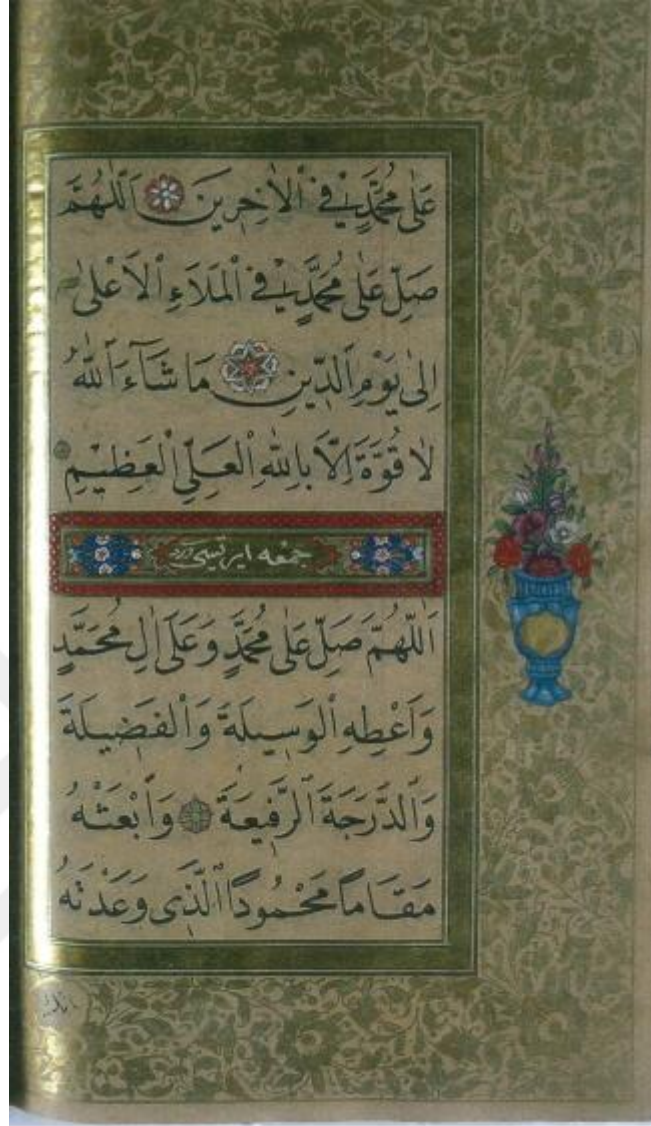 عَلٰى مُحَمَّدٍ فِي ٱلْاٰخِرِينَ اَللّٰهُمَّ
صَلِّ عَلٰى مُحَمَّدٍ فِي ٱلْمَلَاءِ ٱلْاَعْلٰى
اِلٰى يَوْمِ ٱلدِّينِ مَا شَآءَ ٱللّٰهُ
لَا قُوَّةَ اِلَّا بِاللّٰهِ ٱلْعَلِيِّ ٱلْعَظِيمِ
جمعه ايرتسى
اَللّٰهُمَّ صَلِّ عَلٰى مُحَمَّدٍ وَعَلٰٓى اٰلِ مُحَمَّدٍ
وَاَعْطِهِ ٱلْوَسِيلَةَ وَٱلْفَضِيلَةَ
وَٱلدَّرَجَةَ ٱلرَّفِيعَةَ وَٱبْعَثْهُ
مَقَامًا مَحْمُودًا ٱلَّذِى وَعَدْتَهُ
انك